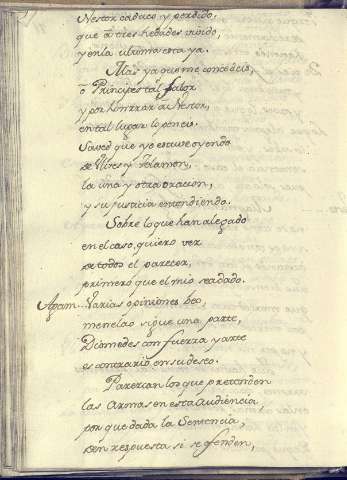 Nestor caduco y perdido,
que a tres hedades vivido,
y en la ultima esta ya.
Mas ya que me concedeis,
o Principes tal fabor
y por honrrar a Nestor,
en tal lugar lo poneis.
Saved que yo estuve oyendo
de Vlixes y Telamon,
la una y otra oracion,
y su justicia entendiendo.
Sobre lo que han alegado
en el caso, quiero ver
de todos el parecer,
primero que el mio sea dado.
Agam. Varias opiniones veo,
menelao sigue una parte,
Diomedes con fuerza y arte
es contrario en su deseo.
Parezcan los que pretenden
las Armas en esta Audiencia
por que dada la Sentencia,
den respuesta si se ofenden,